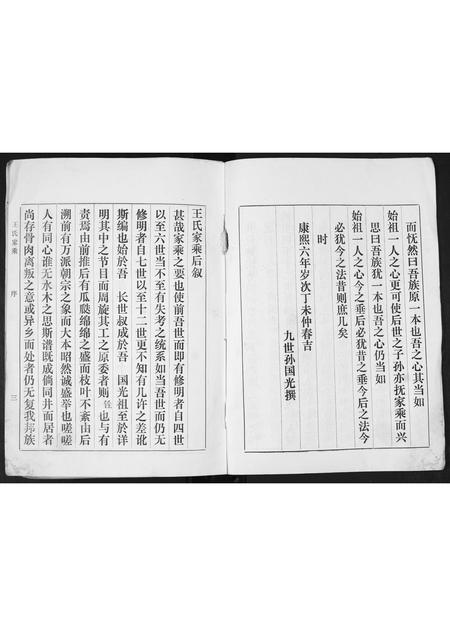 而怃然曰吾族原一本也吾之心其当如
始祖一人之心更可使后世之子孙亦抚家乘而兴
思曰吾族犹一本也吾之心仍当如
始祖一人之心今之垂后必犹昔之垂今后之法今
必犹今之法昔则庶几矣
时
康熙六年岁次丁未仲春吉
九世孙国光撰
王氏家乘后叙
甚哉家乘之要也使前吾世而即有修明者自四世
以至六世当不至有失考之统系如当吾世而仍无
修明者自七世以至十二世更不知有几许之差讹
斯编也始於吾 长世叔成於吾 国光祖至於详
明其中之节目而周旋其工之原委者则 也与有
责焉由前推后有瓜瓞绵绵之盛而枝叶不紊由后
溯前有万派朝宗之象而大本昭然诚盛举也嗟嗟
人有同心谁无水木之思斯谱既成倘同井而居者
尚存骨肉离叛之意或异乡而处者仍无复我邦族
王氏家乘
序
三